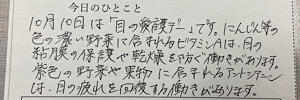 今日のひとこと
10月10日は「目の愛護デー」です。にんじん等の
色の濃い野菜に含まれるビタミンAは、目の
粘膜の保護や乾燥を防ぐ働きがあります。
紫色の野菜や果物に含まれるアントシアニン
は、目の疲れを回復する働きがあります。